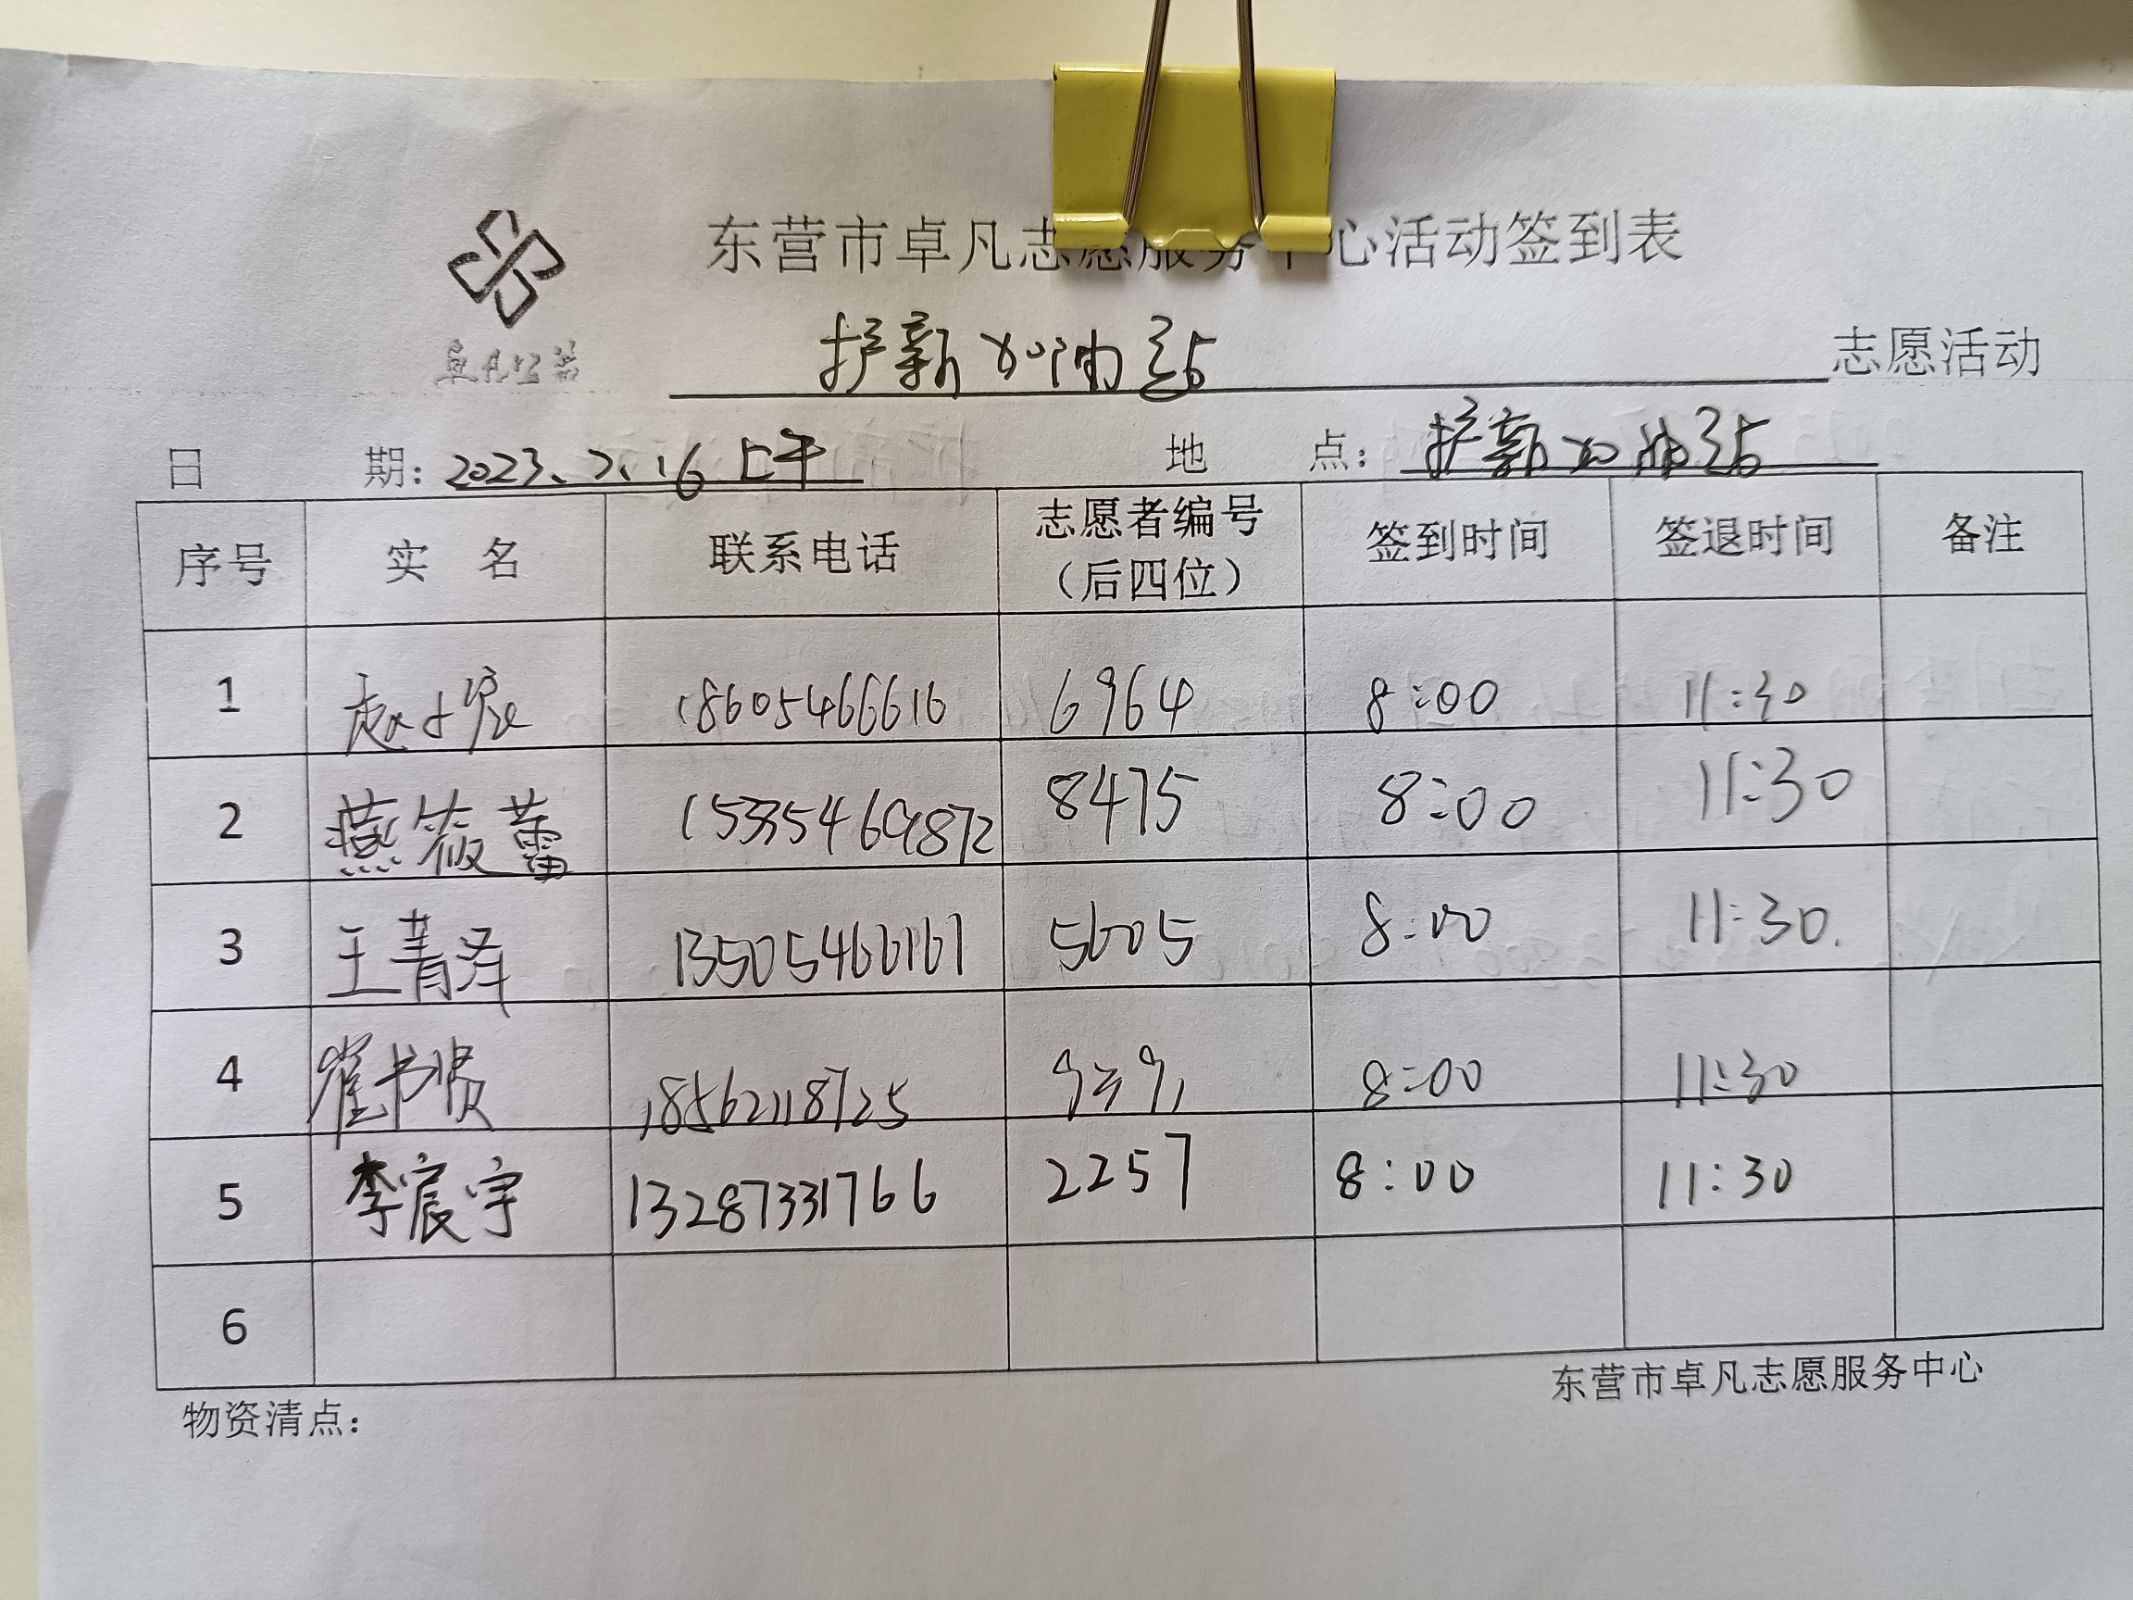 东营市卓凡志愿服务中心活动签到表
卓凡公益
护薪加油站 志愿活动
日 期: 2023.7.16 上午 地 点: 护薪加油站
序号 实 名 联系电话 志愿者编号（后四位） 签到时间 签退时间 备注
1 赵小宸 18605466616 6964 8:00 11:30
2 燕筱蕾 15335469872 8475 8:00 11:30
3 王菁泽 13505466161 5605 8:00 11:30.
4 崔书贤 18562118725 8:00 11:30
5 李宸宇 13287331766 2257 8:00 11:30
6
东营市卓凡志愿服务中心
物资清点：